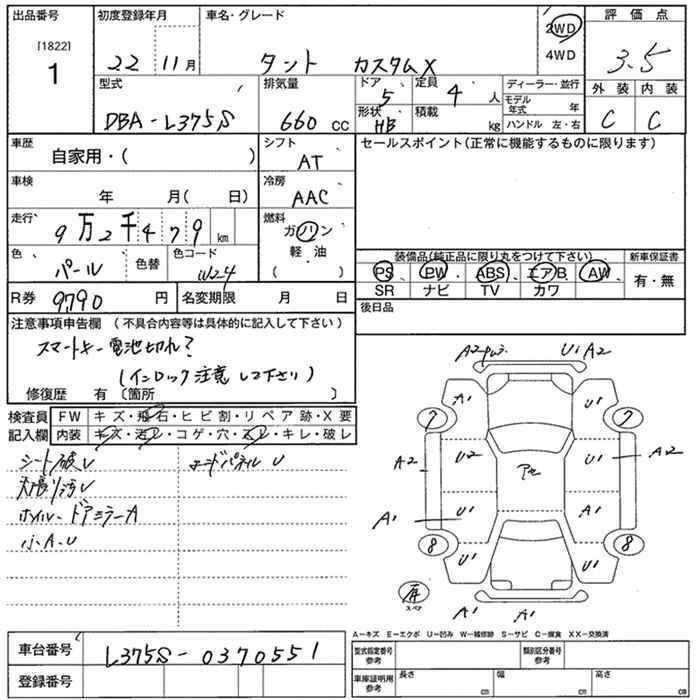 出品番号 初度登録年月 車名・グレード 評価点
[1822]
1
22 11月 タント カスタムX 2WD
4WD
3.5
型式 排気量 ドア 定員 ディーラー・並行 外装 内装
DBA-L375S 660 cc 5 4 人 モデル年式 年
形状 積載 HB kg ハンドル 左・右 C C
車歴 シフト セールスポイント(正常に機能するものに限ります)
自家用・( ) AT
車検 冷房
年 月( 日) AAC
走行 燃料
9万2千479 km ガソリン
軽油
( )
色 色替 色コード
パール W24
装備品(純正品に限り丸をつけて下さい) 新車保証書
PS PW ABS エアB AW
SR ナビ TV カワ 有・無
R券 9790 円 名変期限 月 日
後日品
注意事項申告欄 (不具合内容等は具体的に記入して下さい)
スマートキー電池切れ?
(インロック注意して下さい)
修復歴 有〔箇所 〕
検査員 FW キズ・飛石・ヒビ割・リペア跡・X要
記入欄 内装 キズ・汚レ・コゲ・穴・スレ・キレ・破レ
シート破U ロードパネルU
天張り汚U
ホイル-ドアミラーA
小A.U
A2 U1 A2
A1 U1
7 7
U2 アセ U1
A2 A2
A1 U1 A1
8 8
U1 U1
スペア
A1 A1
A-キズ E-エクボ U-凹み W-補修跡 S-サビ C-腐食 XX-交換済
車台番号 L375S-0370551
型式指定番号 参考 類別区分番号 参考
登録番号
車庫証明用 参考 長さ cm 幅 cm 高さ cm